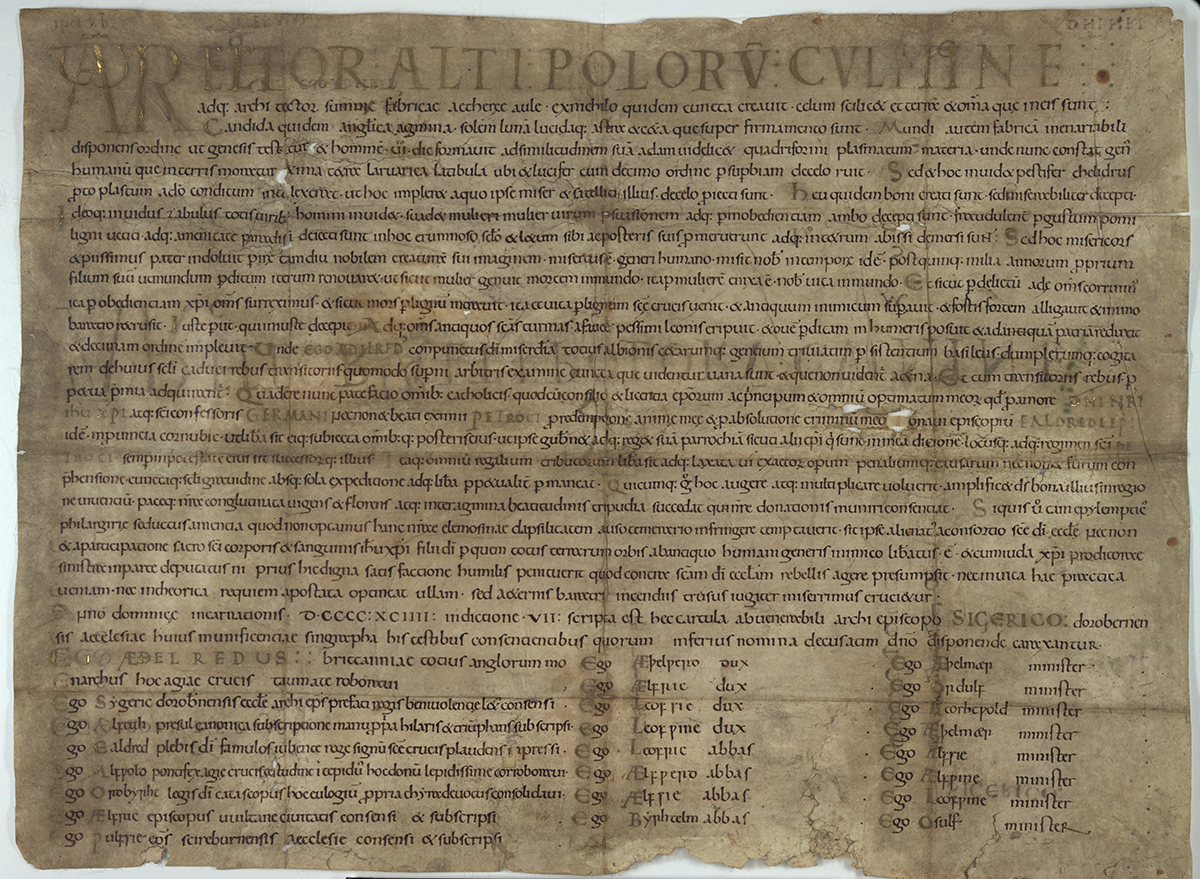 ALTI : POLORŪ : CVLMINE
adq; archi tector summe fabricae aethereae aule · ex nichilo quidem cuncta creavit · celum scilicet et terrā & om̄a que in eis sunt :
Candida quidem anglica agmina · solem lunā lucidaq; astra & cetera que super firmamento sunt · Mundi autem fabricā inenarrabili
disponens ordine ut genesis testatur & hominē · VI · die formavit ad similitudinem suā adam videlicet quadriformi plasmatum materia · unde nunc constat gen̄
humanū que in terris moratur & ima terrae latibula ubi & lucifer cum decimo ordine p̱ supbiam de celo ruit · Sed & hoc invidet pestifer chelidrus
p̱to plastum a dō conditum intellegeret ut hoc impleret a quo ipse miser & satellites illius · de celo p̱iecti sunt · Heu quidem boni creati sunt · sed miserabiliter decepti
Ideoq; invidus zabulus totis homini invidet · suadet mulieri mulier virum p̱ suasionem adq; p̱ inobedientiam ambo decepti sunt · fraudulenter p̱ gustum pomi
ligni vetiti · adq; amenitate paradisi deiecti sunt in hoc erumnoso sclo & letum sibi ac posteris suis p̱meruerunt adq; in tetrum abissi demersi sunt · Sed hoc misericors
& piissimus pater indoluit p̱ire tam diu nobilem creaturae sui imaginem · misertus ē generi humano · misit nob̄ in tempore idē · post quinq; milia annorum p̱prium
filium suū ut mundum p̱ditum iterum renovaret · ut sicut mulier genuit mortem in mundo · ita p̱ mulierē enixa ē nob̄ vita in mundo · Et sicut p̱ delictū adę om̄s corruim;
ita p̱ obedientiam xp̄i om̄s surreximus · & sicut mors p̱ lignū introivit · ita et vita p̱ lignum scē crucis venit · & antiquum inimicum & fortis fortem alligavit & in imo
baratro retrusit · Iuste p̱iit · qui iniuste decepit · Adq; om̄s antiquos turmas a fauce pessimi leonis eripuit · & ovē p̱ditam in humeris posuit & ad antiquā patriā reduxit
& decimam ordinē implevit · Unde EGO ADELRED conpunctus dī misercdia totius albionis ceterarumq; gentium triviatim p̱sistentium basileus · dum plerumq; cogita
rem de huius scli caduci rebus transitoriis quomodo sup̱ni arbitris examine cuncta que videntur vana sunt & que non videntur aeterna · Et cum transitoriis rebus p̱
petua p̱mia adquirentur · Qua de re nunc patefacio om̄ib; catholicis quod cum consilio & licentia ep̄orum ac p̱incipum & omniū optimatum meor̄ qd̄ p̱ amore DNI NRI
IHU XPI atq; sci confessoris GERMANI necnon & beati eximii PETROCI p̱ redemptione anime mee & p̱ absolutione criminū meo donavi episcopiū EALDREDI EPI
idē in p̱vincia cornubie · ut libera sit eiq; subiecta om̄ib; q; posteris eius · ut ipse gubernet adq; regat suā parrochiā sicuti alii ep̄i q̄ sunt in mea dicione · locusq; adq; regimen sci PE
TROCI semp̱ in potestate eius sit successorq; illius · Itaq; omniū regalium tributorum libera sit adq; laxata vi exactor operum penaliumq; causarum necnon & furum con
p̱hensione · cunctaq; scli gravedine absq; sola expeditione adq; libera p̱petualiē p̱maneat · Quicumq; ḡ hoc augere atq; multiplicare voluerit · amplificet ds̄ bona illius in regio
ne viventiū · paceq; nr̄ae conglutinata vigens & floreat atq; inter agmina beatitudinis tripudia succedat qui nr̄ae donationis muniri consentiat · Si quis v̄ tam
philargirie seductus amentia quod non optamus hanc nr̄ae elemosinae dapsilitatem auso temerario infringere temptaverit · sit ipse alienat; a consortio scē dī ecclē necnon
& a participatione sacro sci corporis & sanguinis ih̄u xp̄i filii dī p̱ quem totus terrarum orbis ab antiquo humani generis inimico liberatus · ē · & cum iuda xp̄i proditore
sinistra in parte deputatus ni prius hic digna satisfactione humilis penituerit quod contra scam dī ecclam rebellis agere presumpsit · nec in vita hac practica
veniam · nec in theorica requiem apostata optineat ullam · sed aeternis baratri incendiis trusus iugiter miserrimus crucietur ·
Anno dominicę incarnationis · D·CCCC·XCIIII: indictione · VII: scripta est hec cartula a venerabili archi episcopo SIGERICO: dorobernen
sis aecclesiae huius munificentiae singrapha his testibus consentientibus quorum inferius nomina decusatim dn̄o disponente caraxantur.
EGO ÆÐELREDUS : britanniae totius anglorum mo
narchus hoc agiae crucis taumate roboravi
Ego Sygeric dorobnensis ecclē archi ep̄s prefati regis benivolentię lętus consensi
Ego Ælfeah presul canonica subscriptione manu p̱pria hilaris & triumphans subscripsi ·
Ego Ealdred plebis dī famulos iubente rege signū scē crucis plaudens ipressi ·
Ego Alfƿold pontifex agię crucis hoc donū lepidissime corroboravi ·
Ego Ordbyrht legis dī catascopus hoc eulogiū p̱pria chyra devotus consolidavi ·
Ego Ælfric episcopus viltane civitatis consensi & subscripsi
Ego Ƿulfsie ep̄s scireburnensis aecclesie consensi & subscripsi
Ego Æþelƿerd dux
Ego Ælfric dux
Ego Leofric dux
Ego Leofƿine dux
Ego Leofric abbas
Ego Ælfƿerd abbas
Ego Ælfric abbas
Ego Byrhtelm abbas
Ego Æþelmær minister
Ego Ordulf minister
Ego Beorhtƿold minister
Ego Æþelmær minister
Ego Ælfric minister
Ego Ælfƿine minister
Ego Leofƿine minister
Ego Osulf minister